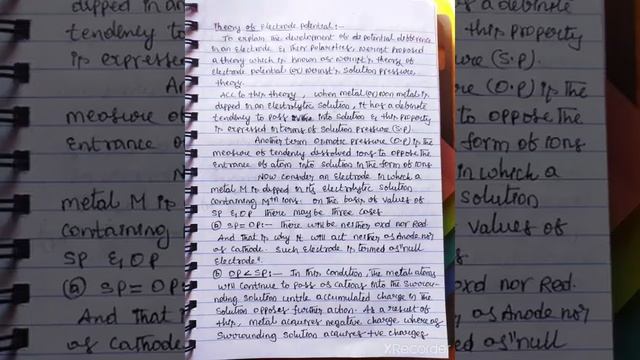 Theory of Electrode potential:-
To explain the development of a potential difference
in an electrode & their polarities, Nernst proposed
a theory which is known as Nernst's theory of
electrode potential (or) Nernst's solution pressure
theory.
Acc to this theory, when metal (or) non metal is
dipped in an electrolytic solution, it has a definite
tendency to pass into solution & this property
is expressed in terms of solution pressure (S.P)
Another term osmotic pressure (O.P) is the
measure of tendency dissolved ions to oppose the
Entrance of atom into solution in the form of ions
Now consider an Electrode in which a
metal M is dipped in its electrolytic solution
containing Mn+ ions. On the basis of values of
SP & OP there may be three cases
(a) SP = OP:- There will be neither oxd nor Red.
And that is why it will act neither as Anode nor
as cathode. Such Electrode is termed as "null
Electrode".
(b) OP < SP:- In this condition, the metal atoms
will continue to pass as cations into the surrou-
nding solution until accumulated charge in the
solution opposes further action. As a result of
this, metal acquires negative charge where as
surrounding solution acquires +ve charges
XRecorder